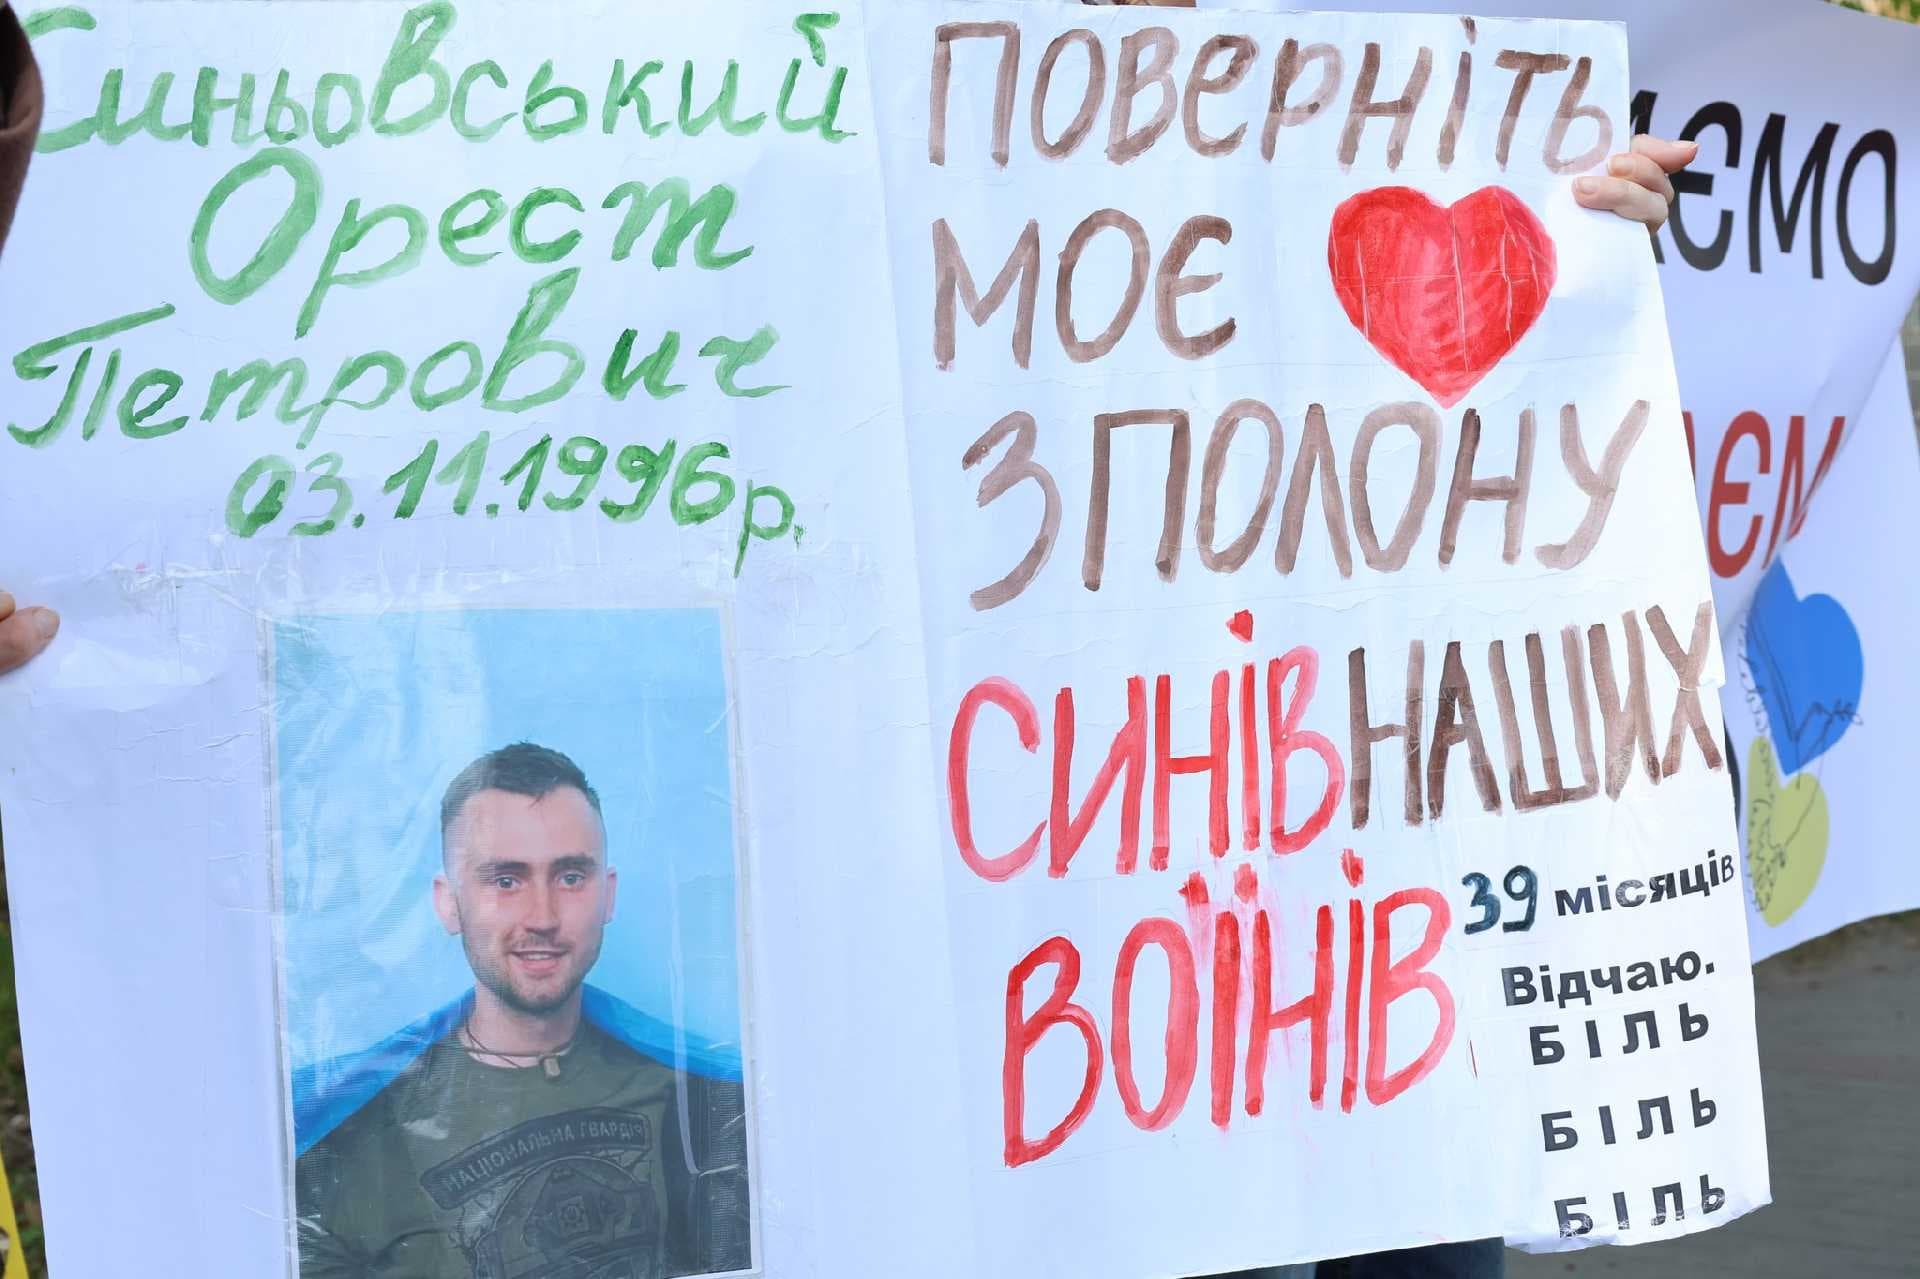 Синьовський
Орест
Петрович
03.11.1996р.
НАЦІОНАЛЬНА ГВАРДІЯ
ПОВЕРНІТЬ
МОЄ
З ПОЛОНУ
СИНІВ НАШИХ
ВОЇНІВ
39 місяців
Відчаю.
БІЛЬ
БІЛЬ
БІЛЬ